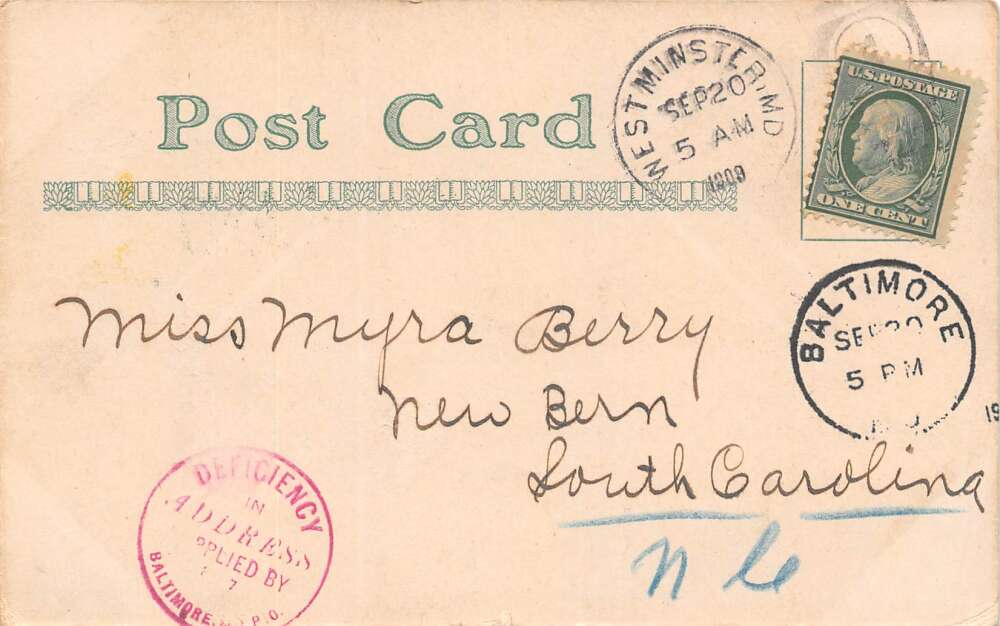 Post Card
WESTMINSTER, MD
SEP 20
5 AM
1909
U.S. POSTAGE
ONE CENT
BALTIMORE
SEP 20
5 PM
Miss Myra Berry
New Bern
South Carolina
N C
DEFICIENCY
IN
ADDRESS
PPLIED BY
7
BALTIMORE, P.O.